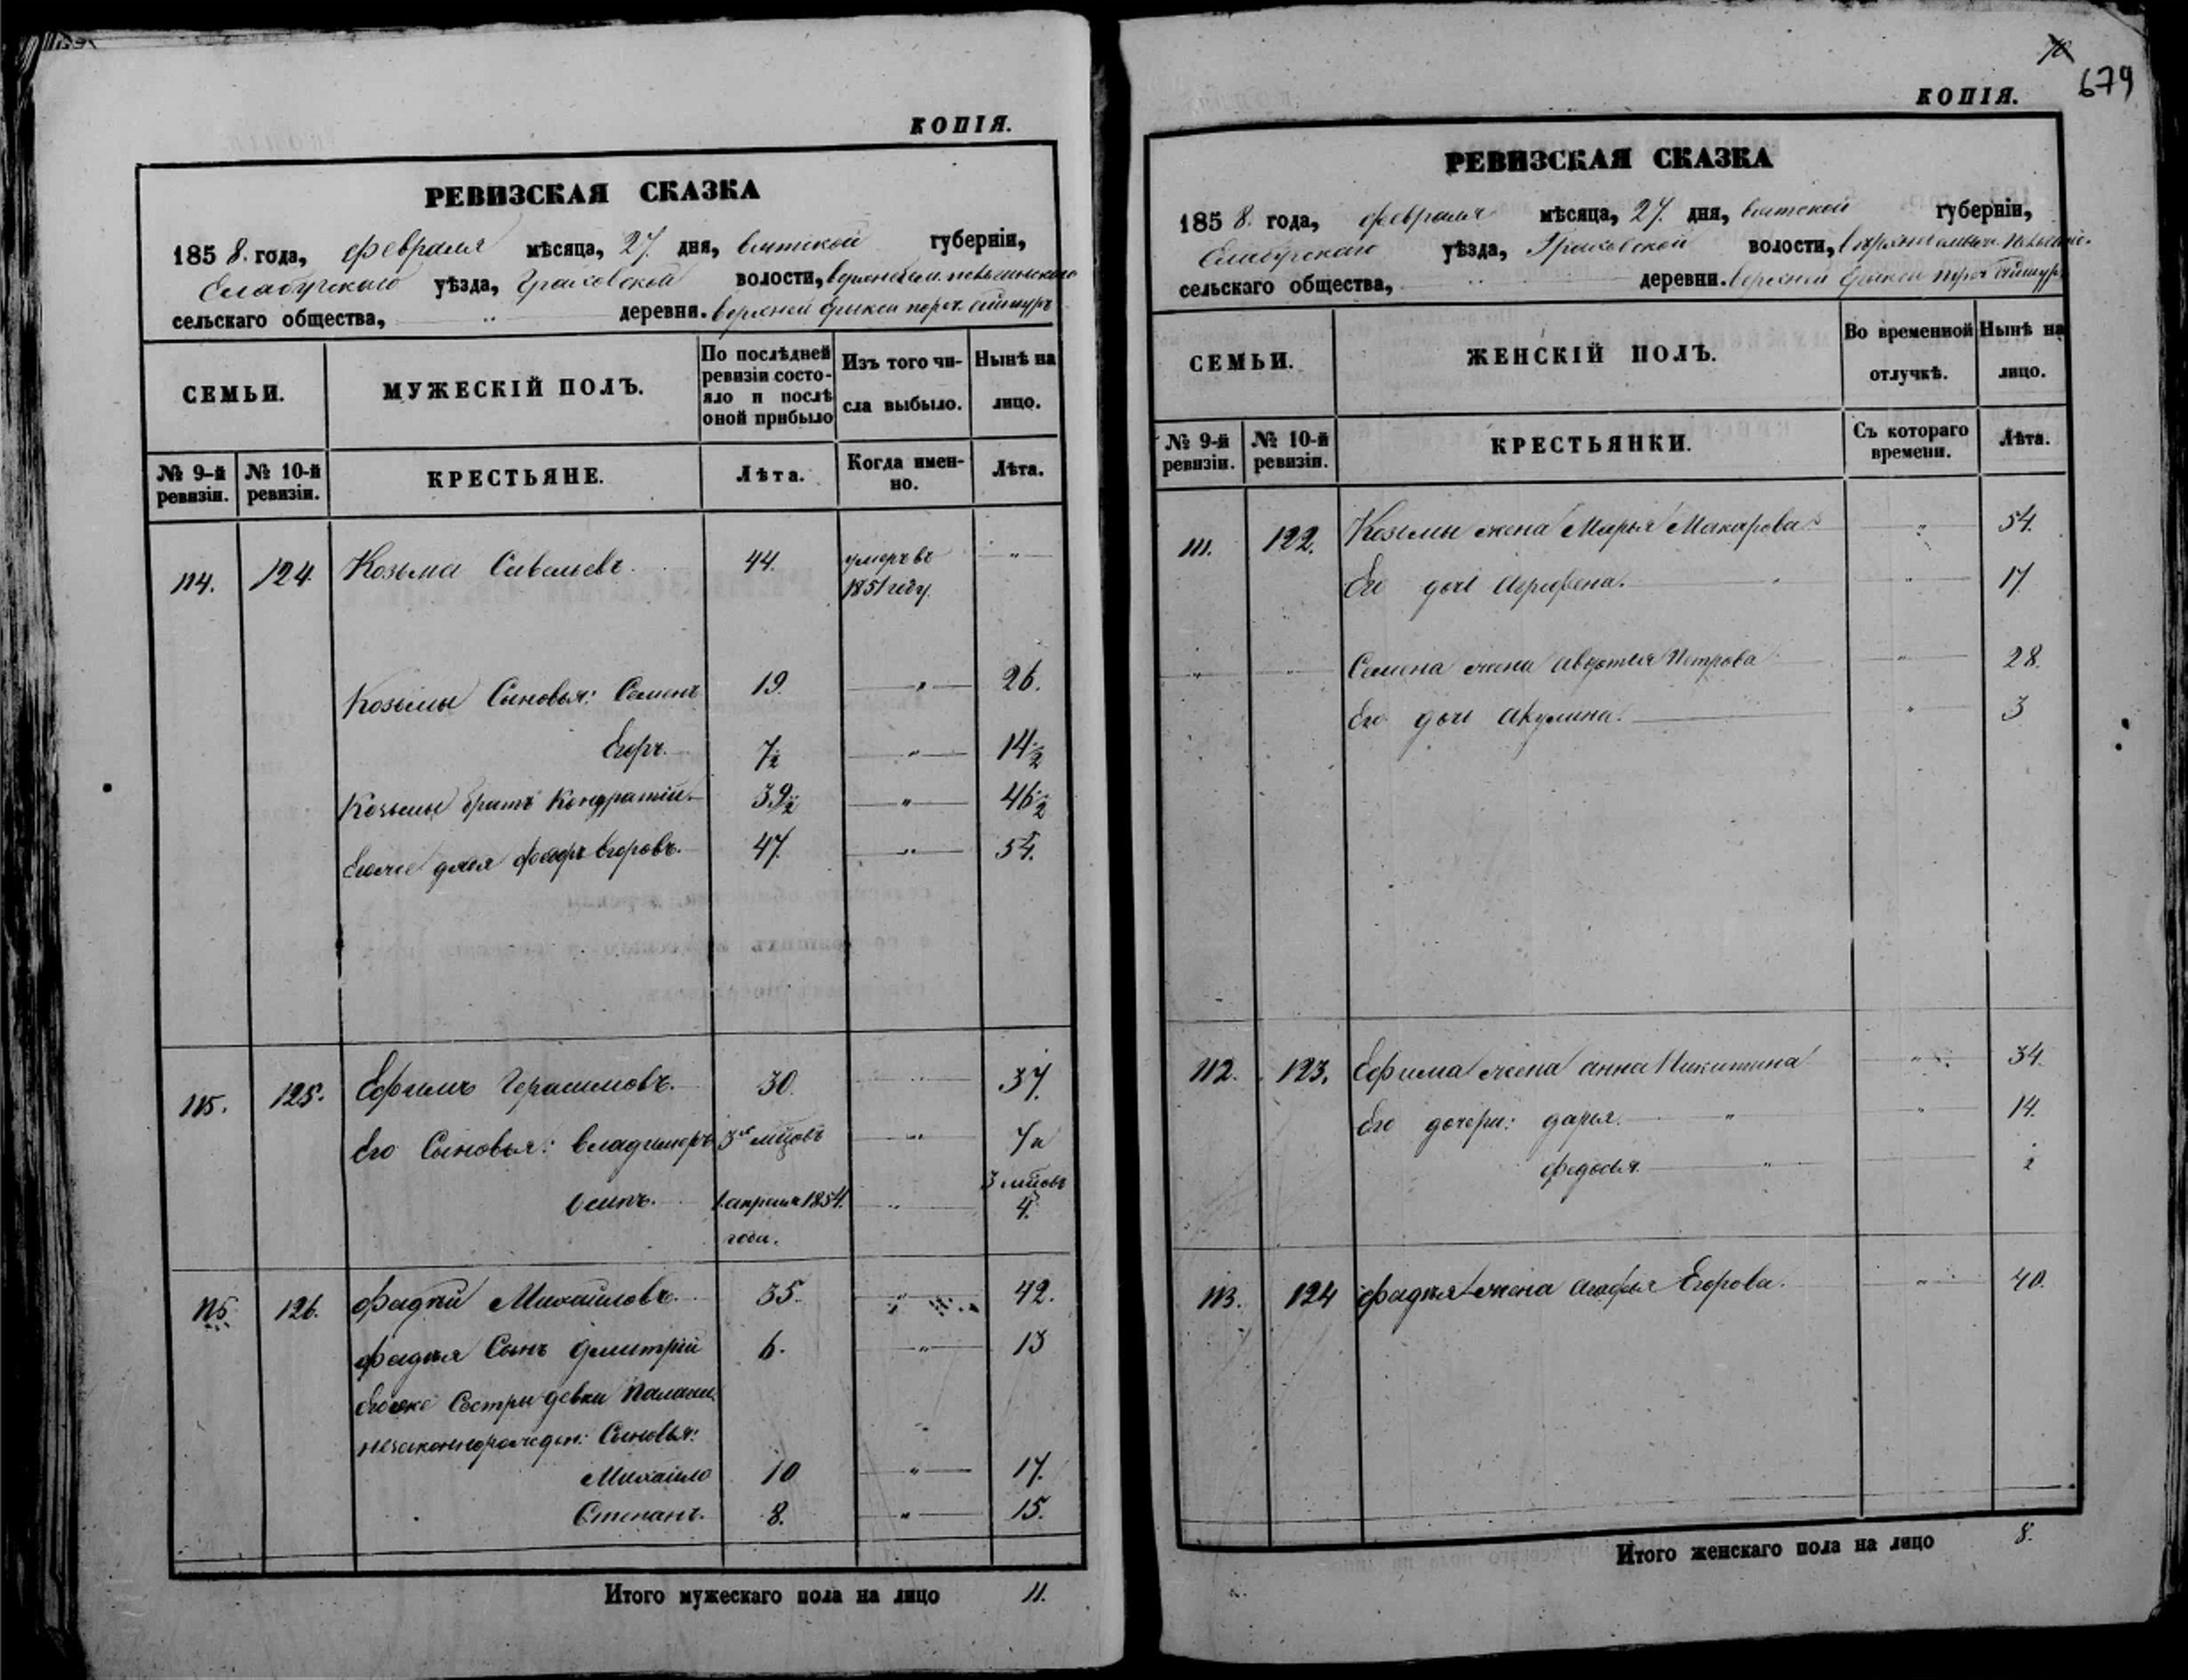 КОПІЯ.
РЕВИЗСКАЯ СКАЗКА
1858. года, февраля мѣсяца, 27. дня, вятской губерніи,
Елабугскаго уѣзда, Граховской волости,
сельскаго общества, " деревни. верхней
СЕМЬИ.
МУЖЕСКІЙ ПОЛЪ.
По послѣдней ревизіи состо-
яло и послѣ оной прибыло
Изъ того чи-
сла выбыло.
Нынѣ на лицо.
№ 9-й ревизіи.
№ 10-й ревизіи.
КРЕСТЬЯНЕ.
Лѣта.
Когда имен-
но.
Лѣта.
114. 124. Козьма Савельевъ. 44. умеръ въ "
1851 году.
Козьмы Сыновья: Семенъ 19. " 26.
Егоръ. 7½ " 14½
Козьмы братъ Кондратій. 39½ " 46½
Егоже дядя Егоровъ. 47. " 54.
115. 125. Ефимъ Герасимовъ. 30. " 37.
Его Сыновья: владимеръ 3хъ мѣцовъ " 7 и
3 мѣцов
Осипъ. 1. апреля 1854. " 4.
года.
115 126. Фадѣй Михайловъ. 35. " 42.
Фадѣя Сынъ Дмитрій 6. " 13
Егоже Сестры девки Палаги
незаконнорожден: Сыновья:
Михайло 10 " 17.
Степанъ. 8. " 15.
Итого мужескаго пола на лицо 11.
679
КОПІЯ.
РЕВИЗСКАЯ СКАЗКА
1858. года, февраля мѣсяца, 27. дня, вятской губерніи,
Елабугскаго уѣзда, Граховской волости,
сельскаго общества, " деревни. верхней
СЕМЬИ.
ЖЕНСКІЙ ПОЛЪ.
Во временной
отлучкѣ.
Нынѣ на
лицо.
№ 9-й ревизіи.
№ 10-й ревизіи.
КРЕСТЬЯНКИ.
Съ котораго
времени.
Лѣта.
111. 122. Козьмы жена Марья Макарова " 54.
Его дочь Агрофена. " 17.
" Семена жена Авдотья Петрова " 28.
Его дочь Акулина. " 3
112. 123. Ефима жена анна Никитина " 34.
Его дочери: дарья. " " 14.
федосья. " 2
113. 124 фадѣя жена Агафья Егорова. " 40.
Итого женскаго пола на лицо 8.